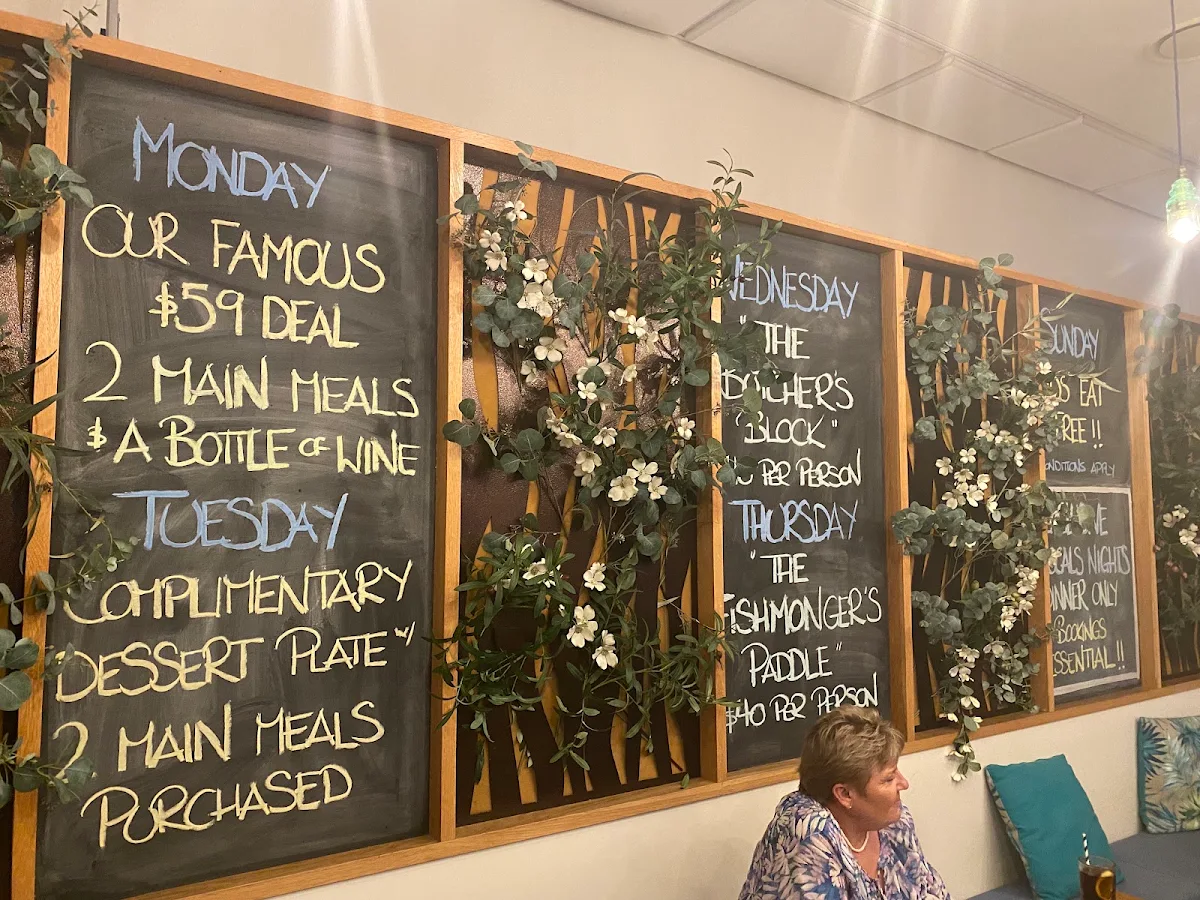 MONDAY
OUR FAMOUS
$59 DEAL
2 MAIN MEALS
& A BOTTLE OF WINE
TUESDAY
COMPLIMENTARY
DESSERT PLATE "/
2 MAIN MEALS
PURCHASED
WEDNESDAY
"THE
BUTCHER'S
BLOCK"
PER PERSON
THURSDAY
"THE
FISHMONGER'S
PADDLE"
$40 PER PERSON
SUNDAY
EAT
FREE !!
CONDITIONS APPLY
NIGHTS
DINNER ONLY
BOOKINGS
ESSENTIAL !!